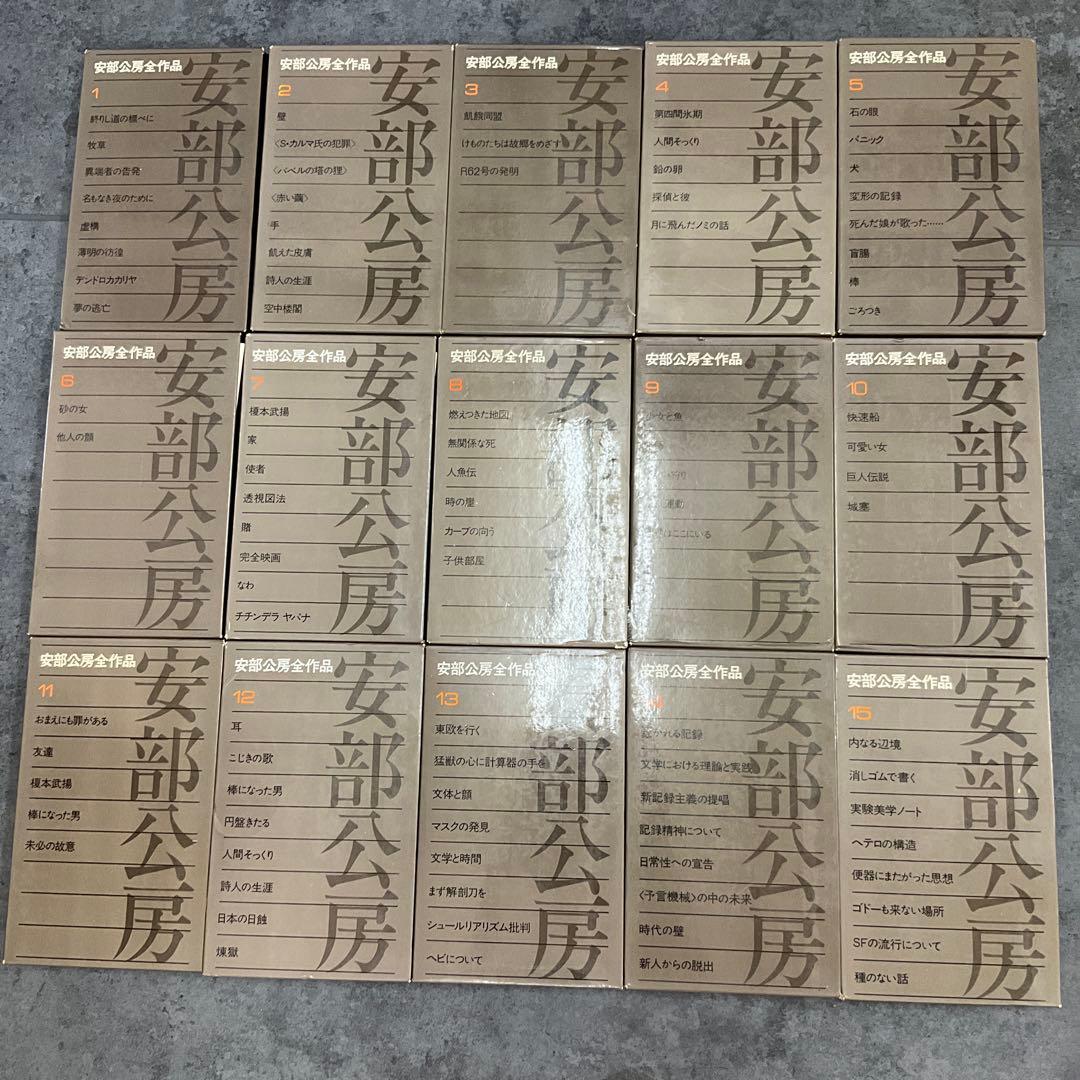 安部公房全作品
1
安部公房
終りし道の標べに
牧草
異端者の告発
名もなき夜のために
虚構
薄明の彷徨
デンドロカカリヤ
夢の逃亡
安部公房全作品
2
安部公房
壁
〈S・カルマ氏の犯罪〉
〈バベルの塔の狸〉
〈赤い繭〉
手
飢えた皮膚
詩人の生涯
空中楼閣
安部公房全作品
3
安部公房
飢餓同盟
けものたちは故郷をめざす
R62号の発明
安部公房全作品
4
安部公房
第四間氷期
人間そっくり
鉛の卵
探偵と彼
月に飛んだノミの話
安部公房全作品
5
安部公房
石の眼
パニック
犬
変形の記録
死んだ娘が歌った……
盲腸
棒
ごろつき
安部公房全作品
6
安部公房
砂の女
他人の顔
安部公房全作品
7
安部公房
榎本武揚
家
使者
透視図法
賭
完全映画
なわ
チチンデラ ヤパナ
安部公房全作品
8
安部公房
燃えつきた地図
無関係な死
人魚伝
時の崖
カーブの向う
子供部屋
安部公房全作品
9
安部公房
少女と魚
狩り
運動
はここにいる
安部公房全作品
10
安部公房
快速船
可愛い女
巨人伝説
城塞
安部公房全作品
11
安部公房
おまえにも罪がある
友達
榎本武揚
棒になった男
未必の故意
安部公房全作品
12
安部公房
耳
こじきの歌
棒になった男
円盤きたる
人間そっくり
詩人の生涯
日本の日蝕
煉獄
安部公房全作品
13
安部公房
東欧を行く
猛獣の心に計算器の手を
文体と顔
マスクの発見
文学と時間
まず解剖刀を
シュールリアリズム批判
ヘビについて
安部公房全作品
14
安部公房
裁かれる記録
文学における理論と実践
新記録主義の提唱
記録精神について
日常性への宣告
〈予言機械〉の中の未来
時代の壁
新人からの脱出
安部公房全作品
15
安部公房
内なる辺境
消しゴムで書く
実験美学ノート
ヘテロの構造
便器にまたがった思想
ゴドーも来ない場所
SFの流行について
種のない話